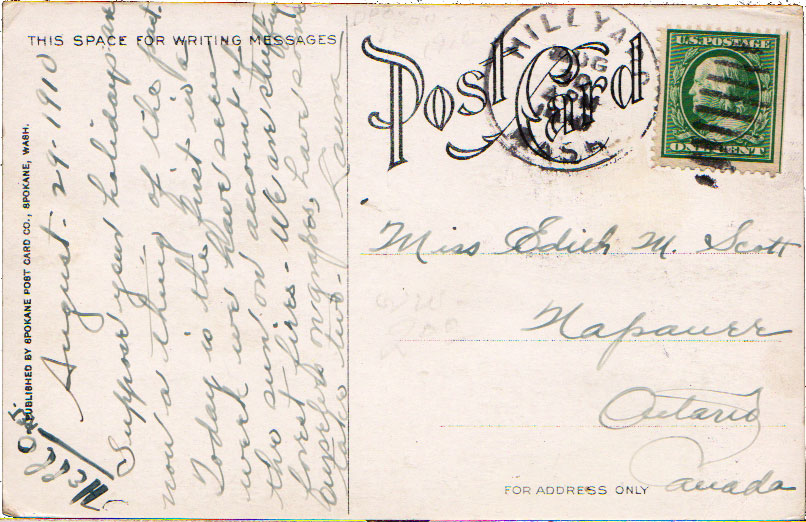 THIS SPACE FOR WRITING MESSAGES
Post Card
HILLYARD
AUG
30
WASH.
U.S. POSTAGE
ONE CENT
PUBLISHED BY SPOKANE POST CARD CO., SPOKANE, WASH.
August - 29 - 1910
Hello
Suppose your holidays are
now a thing of the past.
Today is the first in a
week we have seen
the sun on account of
forest fires - We are study
ourselves on grapes, have
take two
Miss Edith M. Scott
Napanee
Ontario
Canada
FOR ADDRESS ONLY